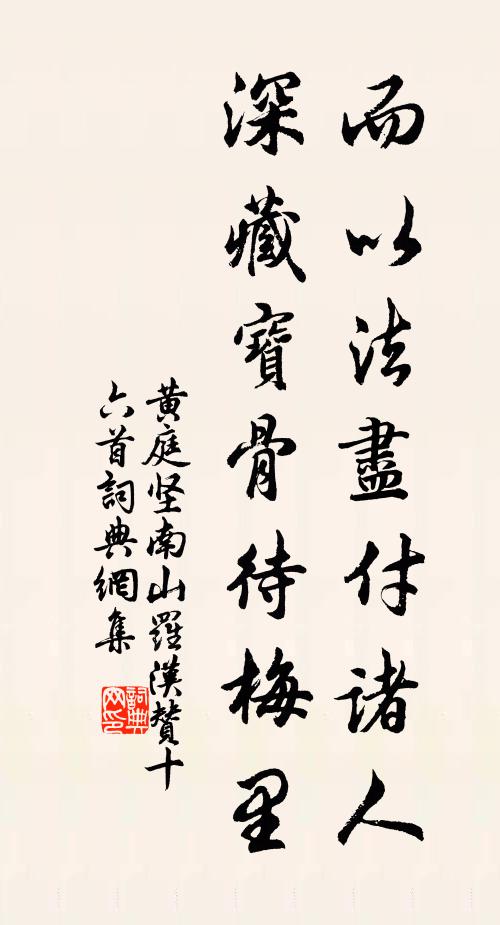 而以法盡付諸人
深藏寶骨待梅里
黃庭坚南山羅漢贊十
六首詞典網集
詞典网印